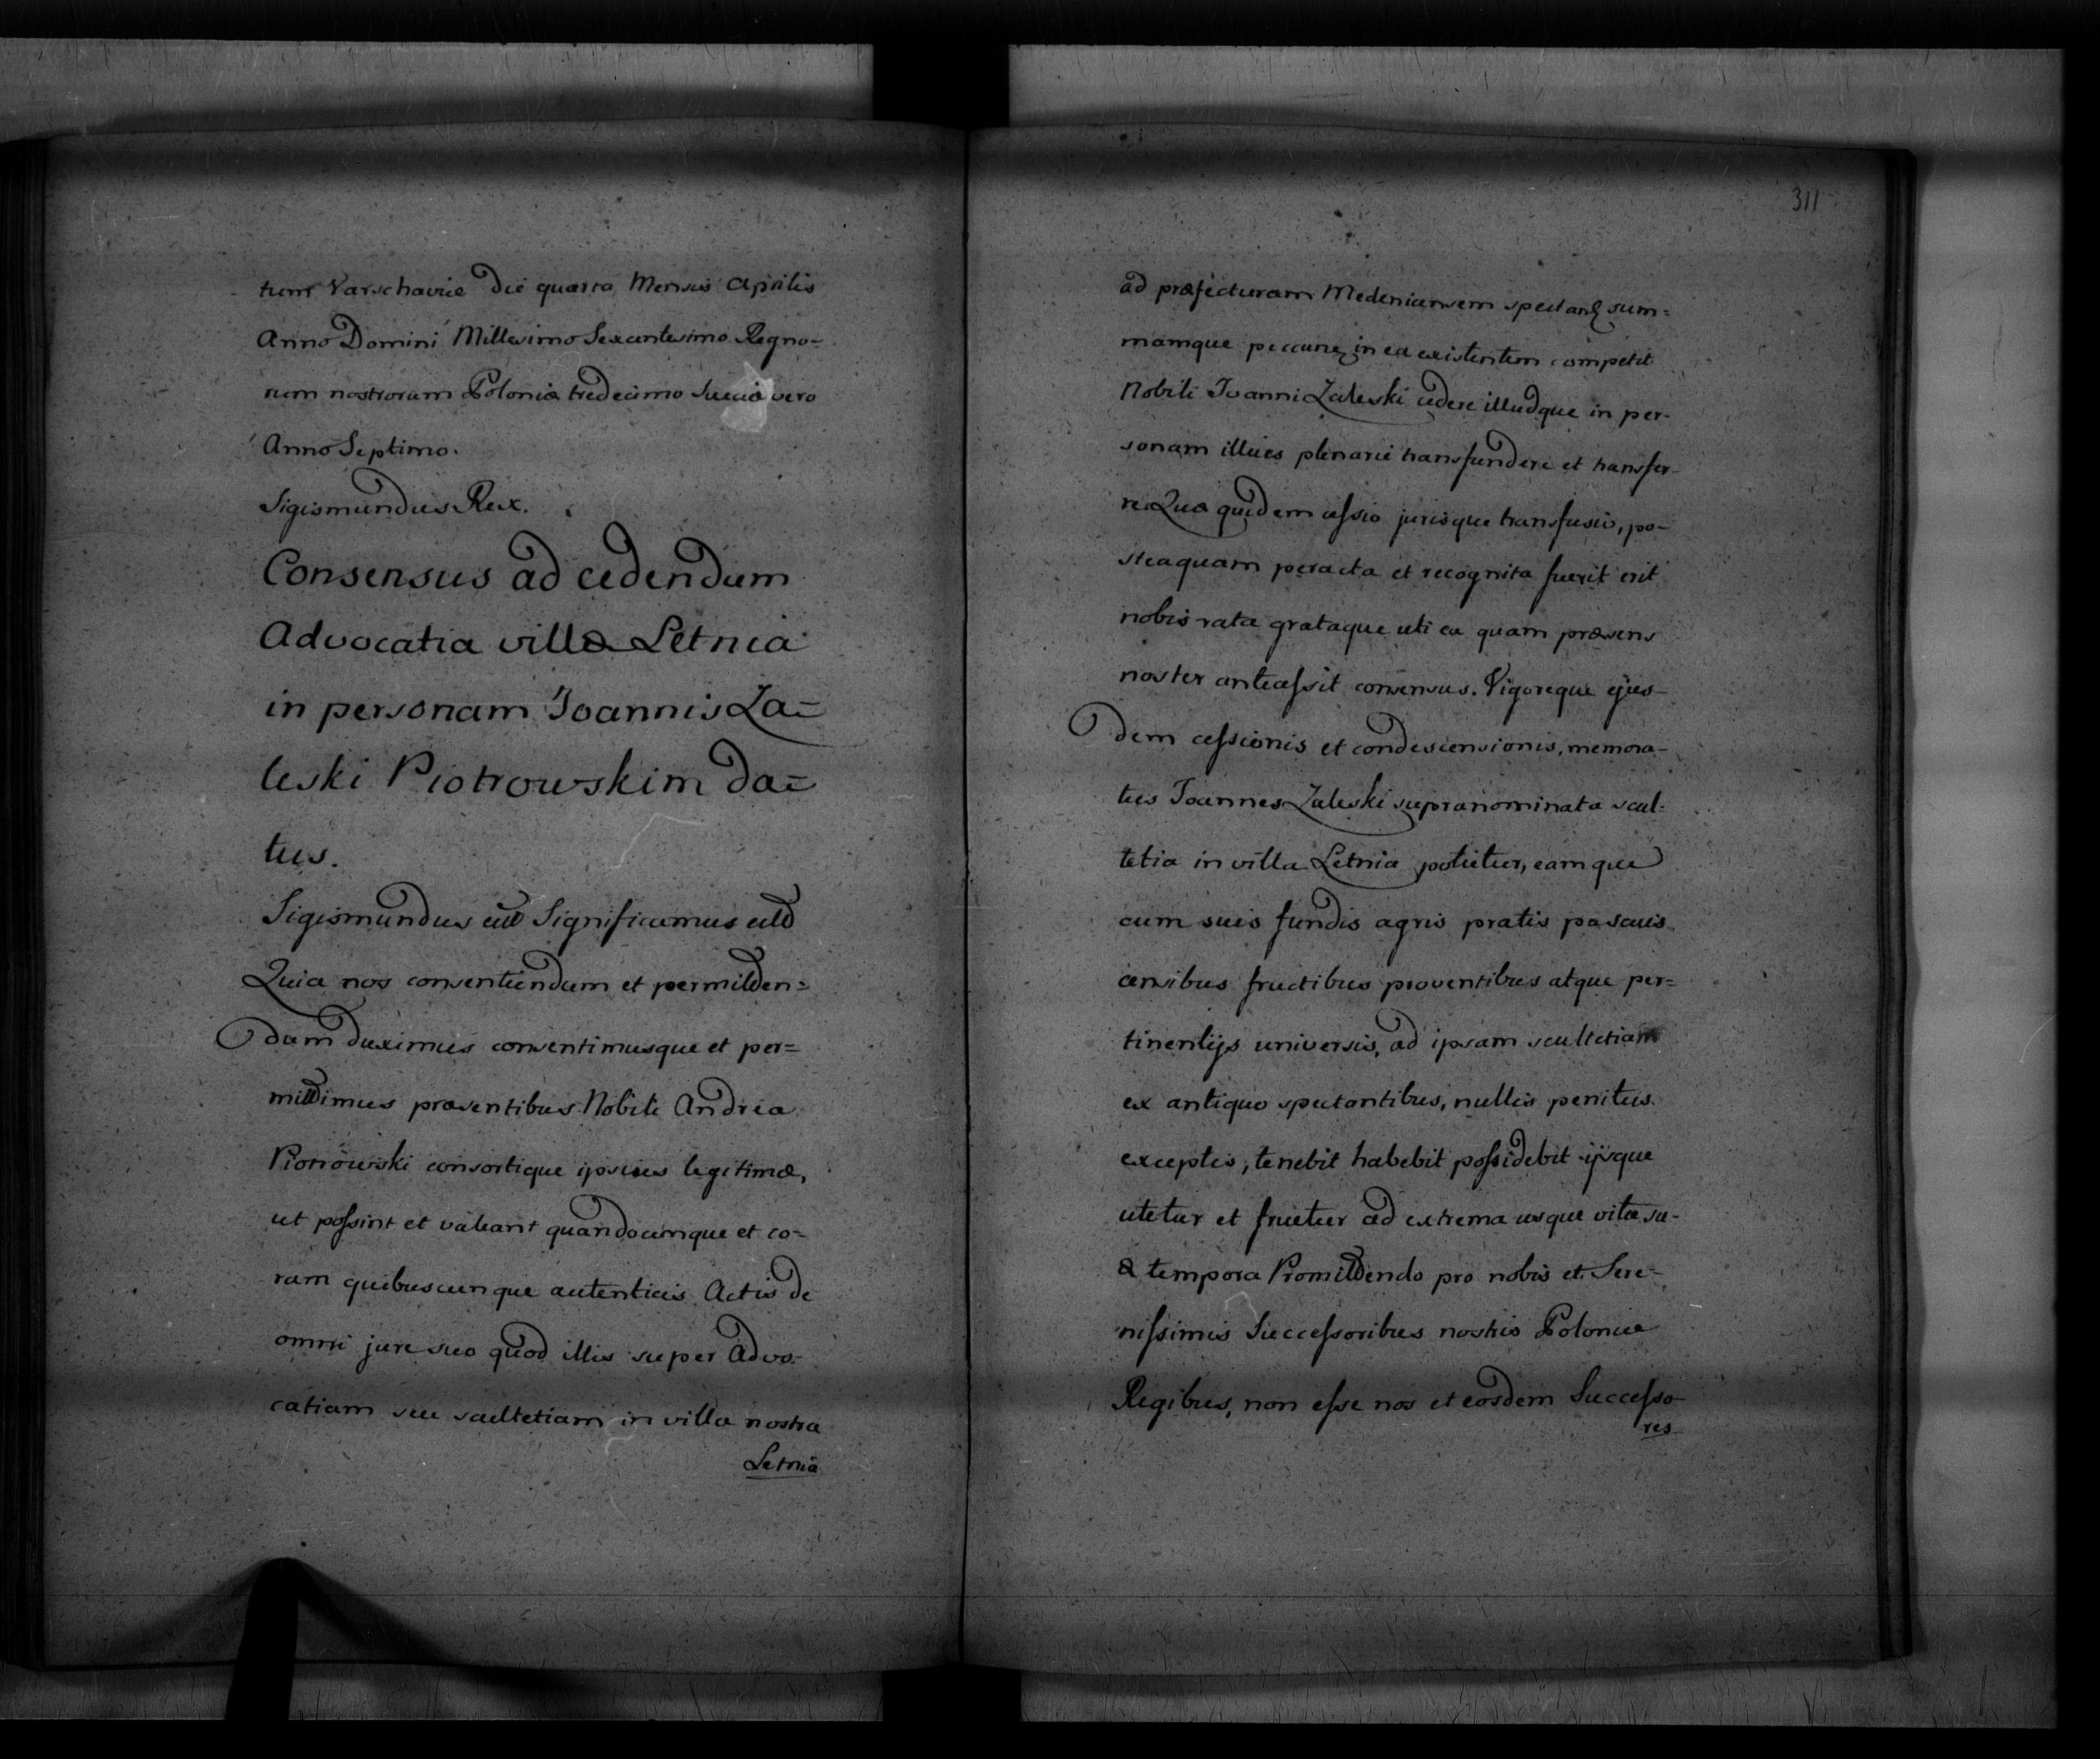 tum Varschaviæ die quarta Mensis Aprilis
Anno Domini Millesimo Sexcentesimo Regno=
rum nostrorum Poloniæ tredecimo Sueciæ vero
Anno Septimo.
Sigismundus Rex.
Consensus ad cedendum
Advocatia villæ Letnia
in personam Joannis Za=
leski Piotrowskim da=
tus.
Sigismundus Significamus
Quia nos consentiendum et permitten=
dum duximus consentimusque et per=
mittimus præsentibus Nobili Andrea
Piotrowski consortique ipsius legitimæ,
ut possint et valeant quandocunque et co=
ram quibuscunque autenticis Actis de
omni jure suo quod illis super Advo-
catiam seu scultetiam in villa nostra
Letnia
311
ad præfecturam Medenicensem sum=
mamque in ea existentem competit
Nobili Joanni Zaleski cedere illudque in per-
sonam illius plenarie transfundere et transfer-
re. Quæ quidem cessio jurisque transfusio, po-
steaquam peracta et recognita fuerit erit
nobis rata grataque uti ea quam præsens
noster antecessit consensus. Vigoreque ejus-
dem cessionis et condescensionis, memora-
tus Joannes Zaleski supranominata scul-
tetia in villa Letnia potietur, eamque
cum suis fundis agris pratis pascuis
censibus fructibus proventibus atque per=
tinentijs universis, ad ipsam scultetiam
ex antiquo spectantibus, nullis penitus
exceptis, tenebit habebit possidebit ijsque
utetur et fruetur ad extrema usque vitæ su-
æ tempora Promittendo pro nobis et Sere-
nissimis Successoribus nostris Poloniæ
Regibus, non esse nos et eosdem Successo-
res